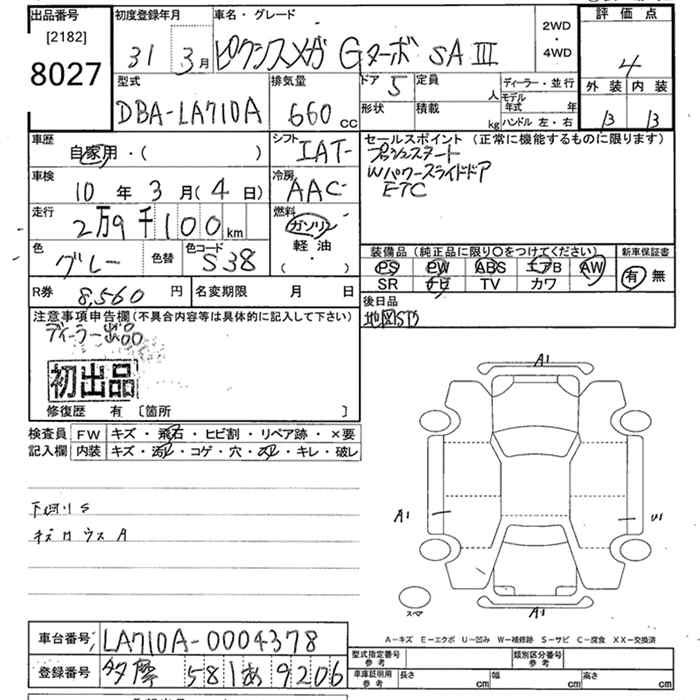 出品番号 初度登録年月 車名・グレード 2WD・4WD 評価点
[2182]
8027 31 3月 ピクシスメガ Gターボ SAIII 4
型式 排気量 ドア 5 定員 人 ディーラー・並行 外装 内装
DBA-LA710A 660cc 形状 積載 kg モデル年式 年 B B
ハンドル 左・右
車歴 シフト セールスポイント (正常に機能するものに限ります)
自家用・( ) IAT プッシュスタート
車検 冷房 Wパワースライドドア
10年3月(4日) AAC ETC
走行 燃料
2万9千100km ガソリン
色 グレー 色替 色コード S38 軽油
(・) 装備品(純正品に限り○をつけてください) 新車保証書
PS PW ABS エアB AW 有 無
R券 8,560円 名変期限 月 日 SR ナビ TV カワ
注意事項申告欄(不具合内容等は具体的に記入して下さい) 後日品
ディーラー出品
初出品
修復歴 有 [箇所 ]
検査員 FW キズ・飛石・ヒビ割・リペア跡・×要
記入欄 内装 キズ・汚レ・コゲ・穴・スレ・キレ・破レ
A1
A1 U1
キズ A
スペア
A1
A-キズ E-エクボ U-凹み W-補修跡 S-サビ C-腐食 XX-交換済
車台番号 LA710A-0004378
型式指定番号 参考 類別区分番号 参考
登録番号 多摩 581 あ 9206 車庫証明用 参考 長さ cm 幅 cm 高さ cm